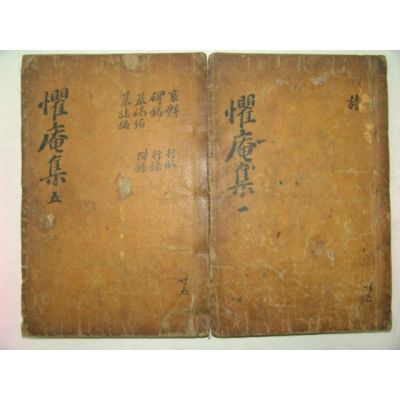 詩
懼庵集 一
哀辭 行狀
碑銘 行錄
墓碣銘 附錄
墓誌銘
懼庵集 五